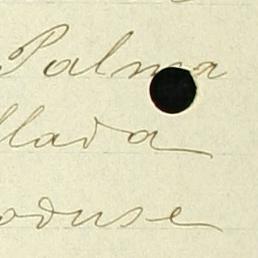 Palma
llada
oduse